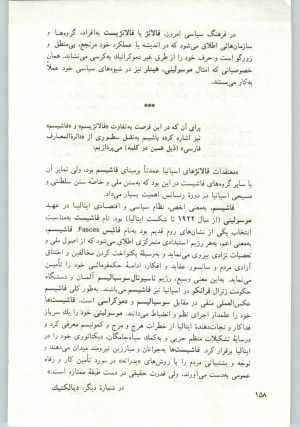 در فرهنگ سیاسی امروز، فالانژ یا فالانژیست به‌افراد، گروه‌ها و
سازمان‌هائی اطلاق می‌شود که در اندیشه یا عملکرد خود مرتجع، بی‌منطق و
زورگو است و حرف خود را از طرق غیر دموکراتیک به‌کرسی می‌نشاند. همان
خصوصیاتی که امثال موسولینی، هیتلر نیز در شیوه‌های سیاسی خود عملاً
به‌کار می‌بستند.
***
برای آن که در این فرصت به‌تفاوت «فالانژیسم» و «فاشیسم»
نیز اشاره کرده باشیم به‌نقل سطوری از «دائرة‌المعارف
فارسی» (ذیل همین دو کلمه) می‌پردازیم:
«معتقدات فالانژهای اسپانیا عمدتاً برمبنای فاشیسم بود، ولی تمایز آن
با سایر گروه‌های فاشیست در این بود که به‌سنن ملی و خاصّه سنن سلطنتی و
مسیحی اسپانیا در دورهٔ رنسانس اهمیت بسیار می‌داد.
فاشیسم، به‌معنی اخص، نظام سیاسی و اقتصادی ایتالیا در عهد
موسولینی (از سال ۱۹۲۲ تا شکست ایتالیا) بود. نام فاشیست به‌مناسبت
انتخاب یکی از نشان‌های روم قدیم بود به‌نام فاسِس Fasces. فاشیسم،
به‌معنی اعم، بهر رژیم استبدادی متمرکزی اطلاق می‌شود که از اصول ملی و
تعصبات نژادی پیروی می‌نماید و به‌وسیلهٔ یکنواخت کردن مخالفین و اختناق
آزادی مردم و سانسور عقاید و افکار، ادامهٔ حکمفرمائی خود را تأمین
نماید. به‌این معنی وسیع، رژیم ناسیونال‌سوسیالیسم آلمان و دستگاه
حکومت ژنرال فرانکو در اسپانیا نیز فاشیسم می‌باشند. به‌طور کلی فاشیسم
عکس‌العملی منفی در مقابل سوسیالیسم و دموکراسی است. فاشیست‌ها
خود را علمدار اجرای نظم و انضباط می‌دانند. موسولینی خود را یک سرباز
فداکار و نجات‌دهندهٔ ایتالیا از خطرات هرج و مرج و کمونیسم معرفی کرد و
درسایهٔ تشکیلات منظم حزبی به‌کمک سیاه‌جامگان، دیکتاتوری خود را در
ایتالیا برقرار کرد. فاشیست‌ها به‌جوانان و مبارزین نیرومند میدان می‌دهند و
توجه و پشتیبانی مردم را با روش‌های «پدرانه» در مورد تأمین کار و رفاه
عمومی به‌دست می‌آورند، ولی قدرت حقیقی در دست طبقهٔ ممتازه است.»
در شمارهٔ دیگر: دیالکتیک
۱۵۸